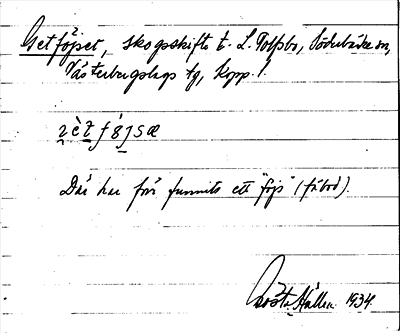 Getföjset, skogsskifte t. L. Tolfsbo, Söderbärke sn,
Västerbergslags tg, Kopp. l.
Där har förr funnits ett "föjs" (fäbod).
Gösta Hallen 1934.